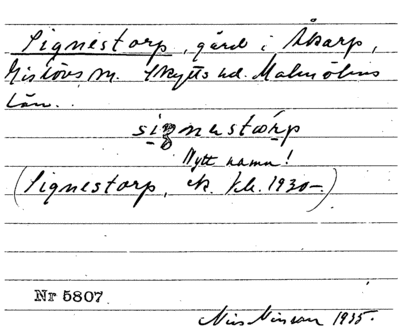 Signestorp, gård i Åkarp,
Gislövs sn. Skytts hd. Malmöhus
län.
signestorp
Nytt namn!
(Signestorp, ek. kb. 1930–)
Nr 5807
Nils Nilsson 1935.